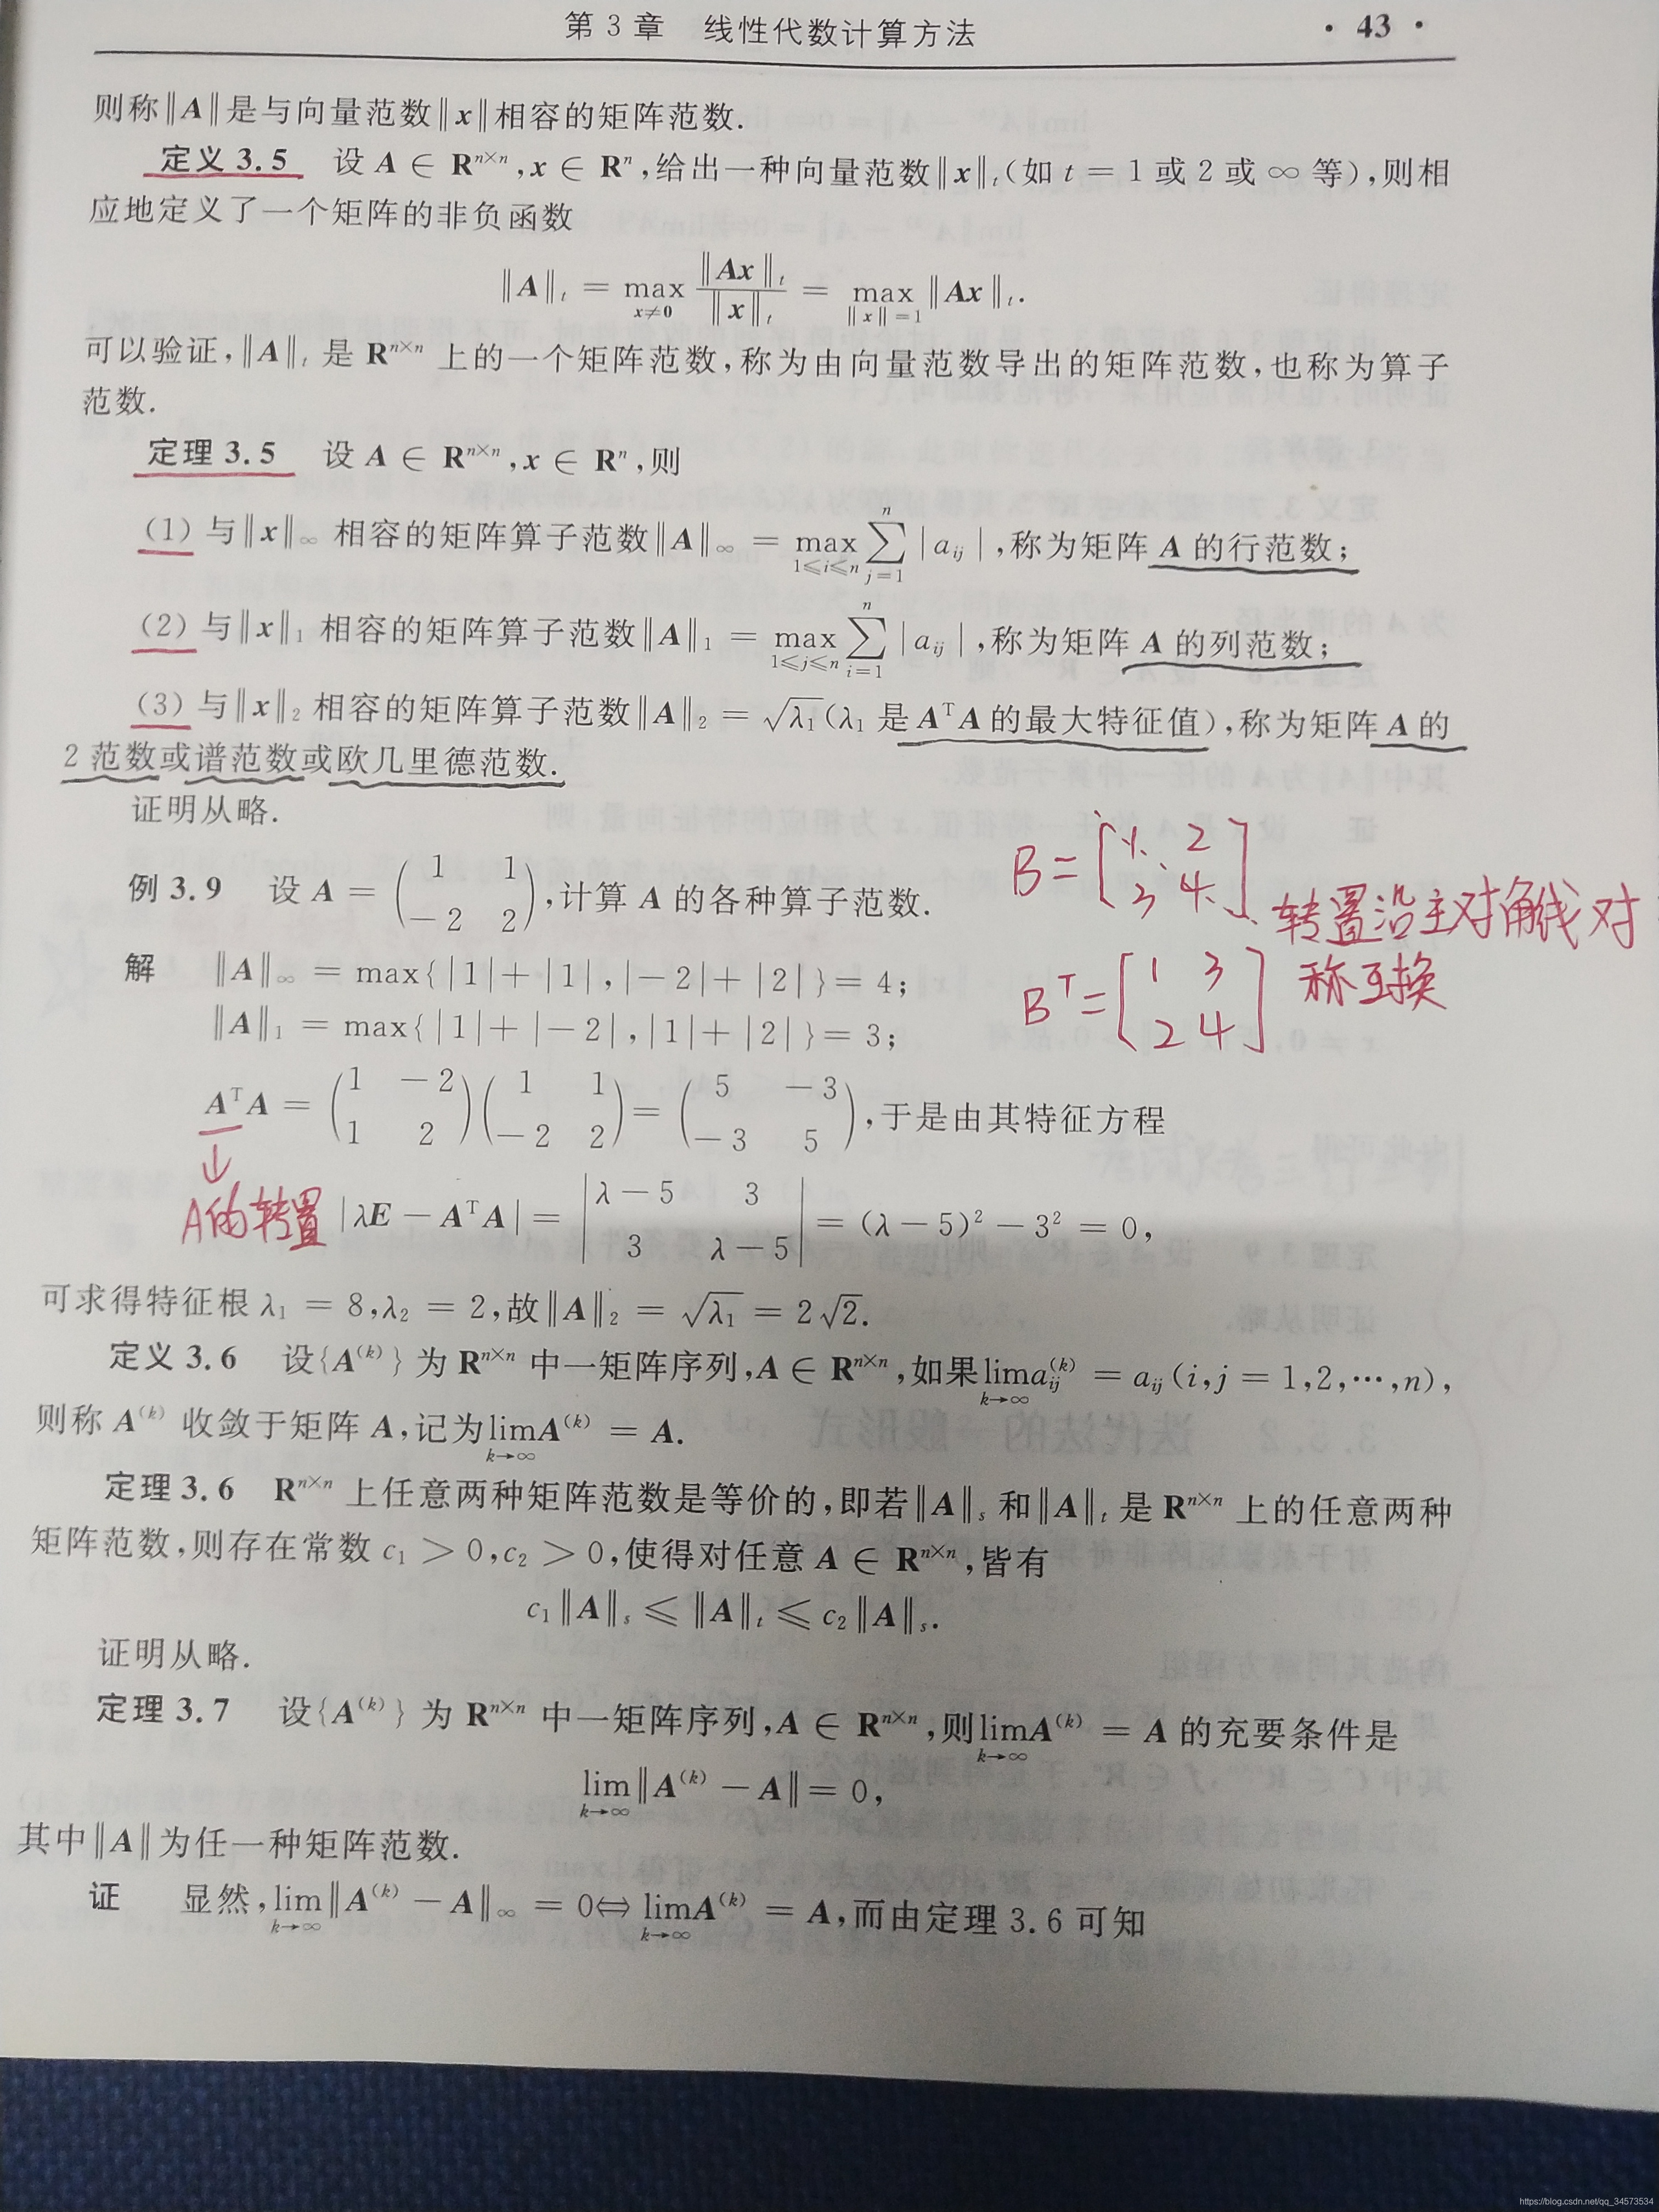 第 3 章 线性代数计算方法 · 43 ·
则称‖A‖是与向量范数‖x‖相容的矩阵范数.
定义 3.5 设 A ∈ R^{n×n}, x ∈ R^n, 给出一种向量范数‖x‖_t (如 t = 1 或 2 或 ∞ 等), 则相
应地定义了一个矩阵的非负函数
‖A‖_t = max_{x≠0} ‖Ax‖_t / ‖x‖_t = max_{‖x‖=1} ‖Ax‖_t.
可以验证, ‖A‖_t 是 R^{n×n} 上的一个矩阵范数, 称为由向量范数导出的矩阵范数, 也称为算子
范数.
定理 3.5 设 A ∈ R^{n×n}, x ∈ R^n, 则
(1) 与‖x‖_∞ 相容的矩阵算子范数‖A‖_∞ = max_{1≤i≤n} ∑_{j=1}^{n} |a_{ij}|, 称为矩阵 A 的行范数;
(2) 与‖x‖_1 相容的矩阵算子范数‖A‖_1 = max_{1≤j≤n} ∑_{i=1}^{n} |a_{ij}|, 称为矩阵 A 的列范数;
(3) 与‖x‖_2 相容的矩阵算子范数‖A‖_2 = √λ_1 (λ_1 是 A^T A 的最大特征值), 称为矩阵 A 的
2 范数或谱范数或欧几里德范数.
证明从略.
例 3.9 设 A = (1 1; -2 2), 计算 A 的各种算子范数.
B = [1 2; 3 4] 转置沿主对角线对
B^T = [1 3; 2 4] 称互换
解 ‖A‖_∞ = max{|1|+|1|, |-2|+|2|} = 4;
‖A‖_1 = max{|1|+|-2|, |1|+|2|} = 3;
A^T A = (1 -2; 1 2)(1 1; -2 2) = (5 -3; -3 5), 于是由其特征方程
↓
A的转置 |λE - A^T A| = |λ-5 3; 3 λ-5| = (λ-5)^2 - 3^2 = 0,
可求得特征根 λ_1 = 8, λ_2 = 2, 故‖A‖_2 = √λ_1 = 2√2.
定义 3.6 设{A^{(k)}} 为 R^{n×n} 中一矩阵序列, A ∈ R^{n×n}, 如果 lim_{k→∞} a_{ij}^{(k)} = a_{ij} (i, j = 1,2,…,n),
则称 A^{(k)} 收敛于矩阵 A, 记为 lim_{k→∞} A^{(k)} = A.
定理 3.6 R^{n×n} 上任意两种矩阵范数是等价的, 即若‖A‖_s 和‖A‖_t 是 R^{n×n} 上的任意两种
矩阵范数, 则存在常数 c_1 > 0, c_2 > 0, 使得对任意 A ∈ R^{n×n}, 皆有
c_1‖A‖_s ≤ ‖A‖_t ≤ c_2‖A‖_s.
证明从略.
定理 3.7 设{A^{(k)}} 为 R^{n×n} 中一矩阵序列, A ∈ R^{n×n}, 则 lim_{k→∞} A^{(k)} = A 的充要条件是
lim_{k→∞} ‖A^{(k)} - A‖ = 0,
其中‖A‖为任一种矩阵范数.
证 显然, lim_{k→∞} ‖A^{(k)} - A‖_∞ = 0 ⇔ lim_{k→∞} A^{(k)} = A, 而由定理 3.6 可知
https://blog.csdn.net/qq_34573534